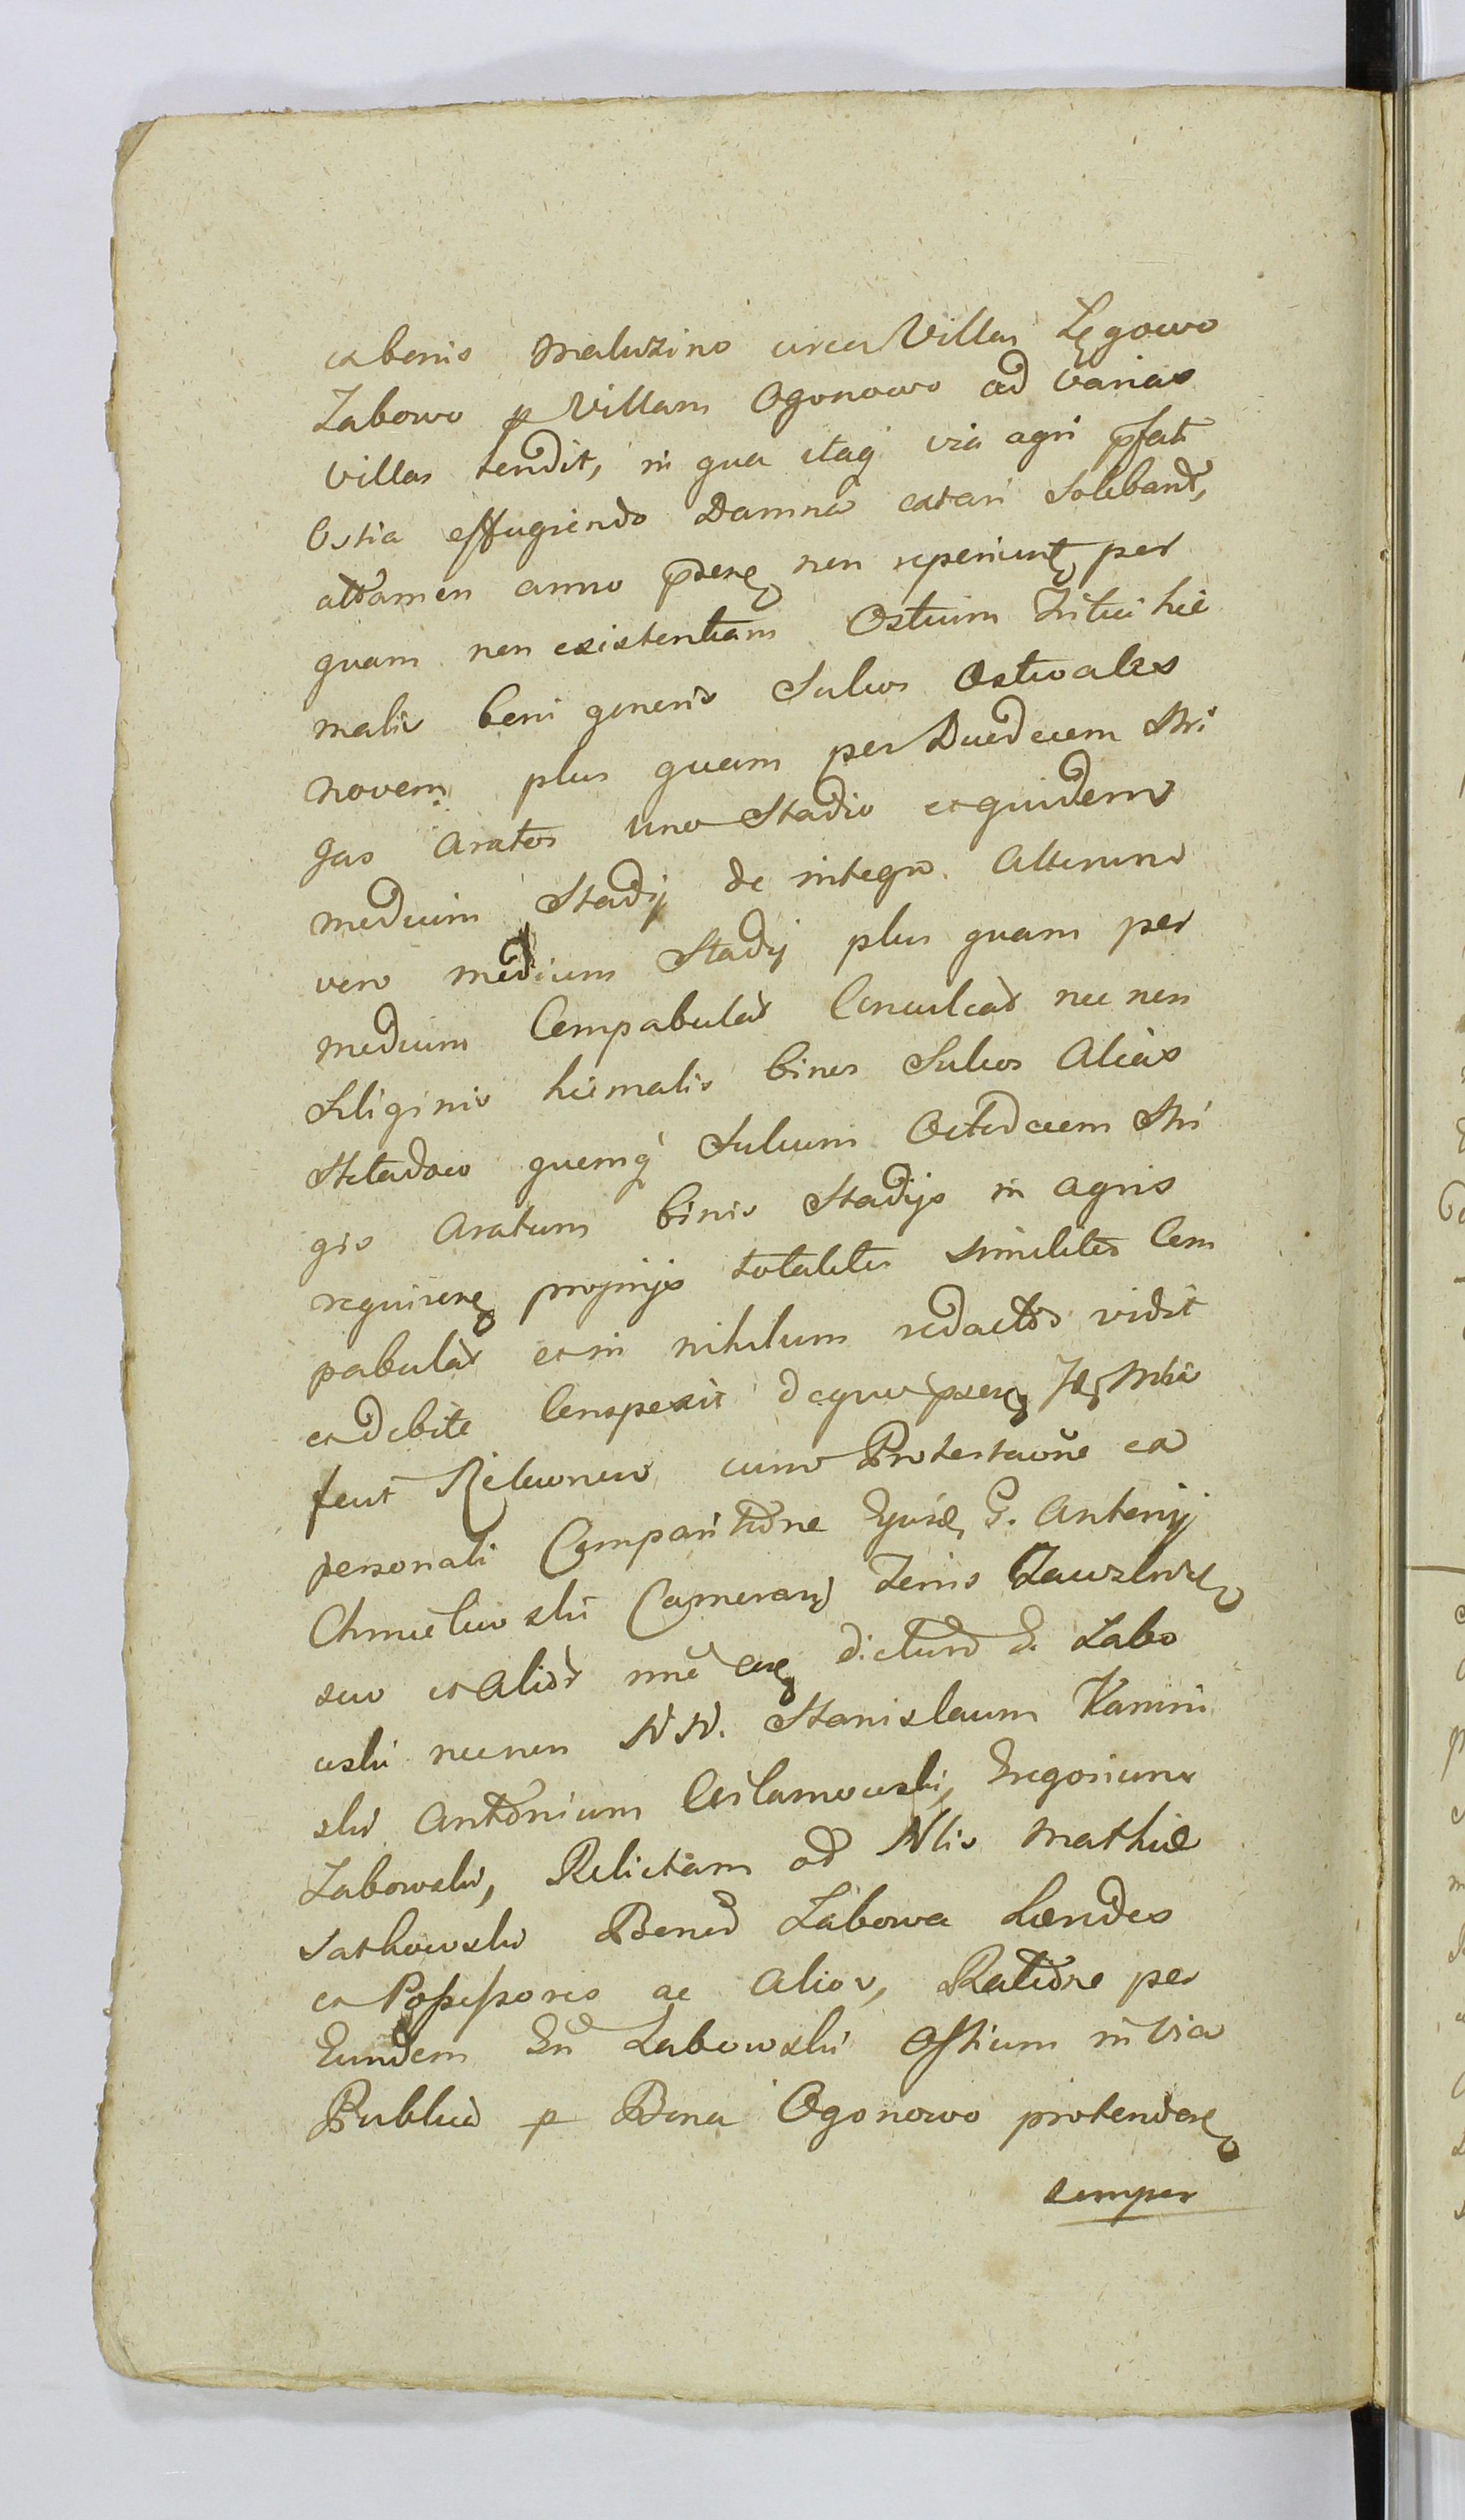 ex bonis Maluzino circa Villas Łęgowo
Zabowo p Villam Ogonowo ad varias
villas tendit, in qua itaq via agri pfati
Ostia effugiendo Damna extari solebant,
attamen anno pdene non reperiunt, per
quam non existentiam Ostium Tritici hie
malis boni generis Sulcos Ostivales
novem plus quam per Duodecem Stri
gas Aratos uno Stadio et quidem
medium Stadij de integro Alterum
vero medium Stadij plus quam per
medium Compabulat Conculcat nec non
Siliginis hiemalis binos Sulcos Alias
Składow quemq Sulcum Octodecem Stri
gis Aratum binis Stadijs in agris
requirene propriys totaliter similiter Com
pabulat et in nihilum redactos vidit
et debite Conspexit deque pdene Idē Mlia
fecit Relonem cum Protestacoñe ex
personali Comparitione Ejusd G. Antonij
Chmieliwski Camerarij Tenis Zawskrz
suo et alior nne ere dictum G. Zabo
wski necnon NN. Stanislaum Kamin
ski Antonium Cislamowski, Gregorium
Zabowski, Relictam od Nlis Mathiæ
Sarkowski Bonor Zabowa Hæredes
et Possessores ac Alios, Ratione per
Eundem Gn Zabowski Ostium in Via
Publica p Bona Ogonowo protendene
semper